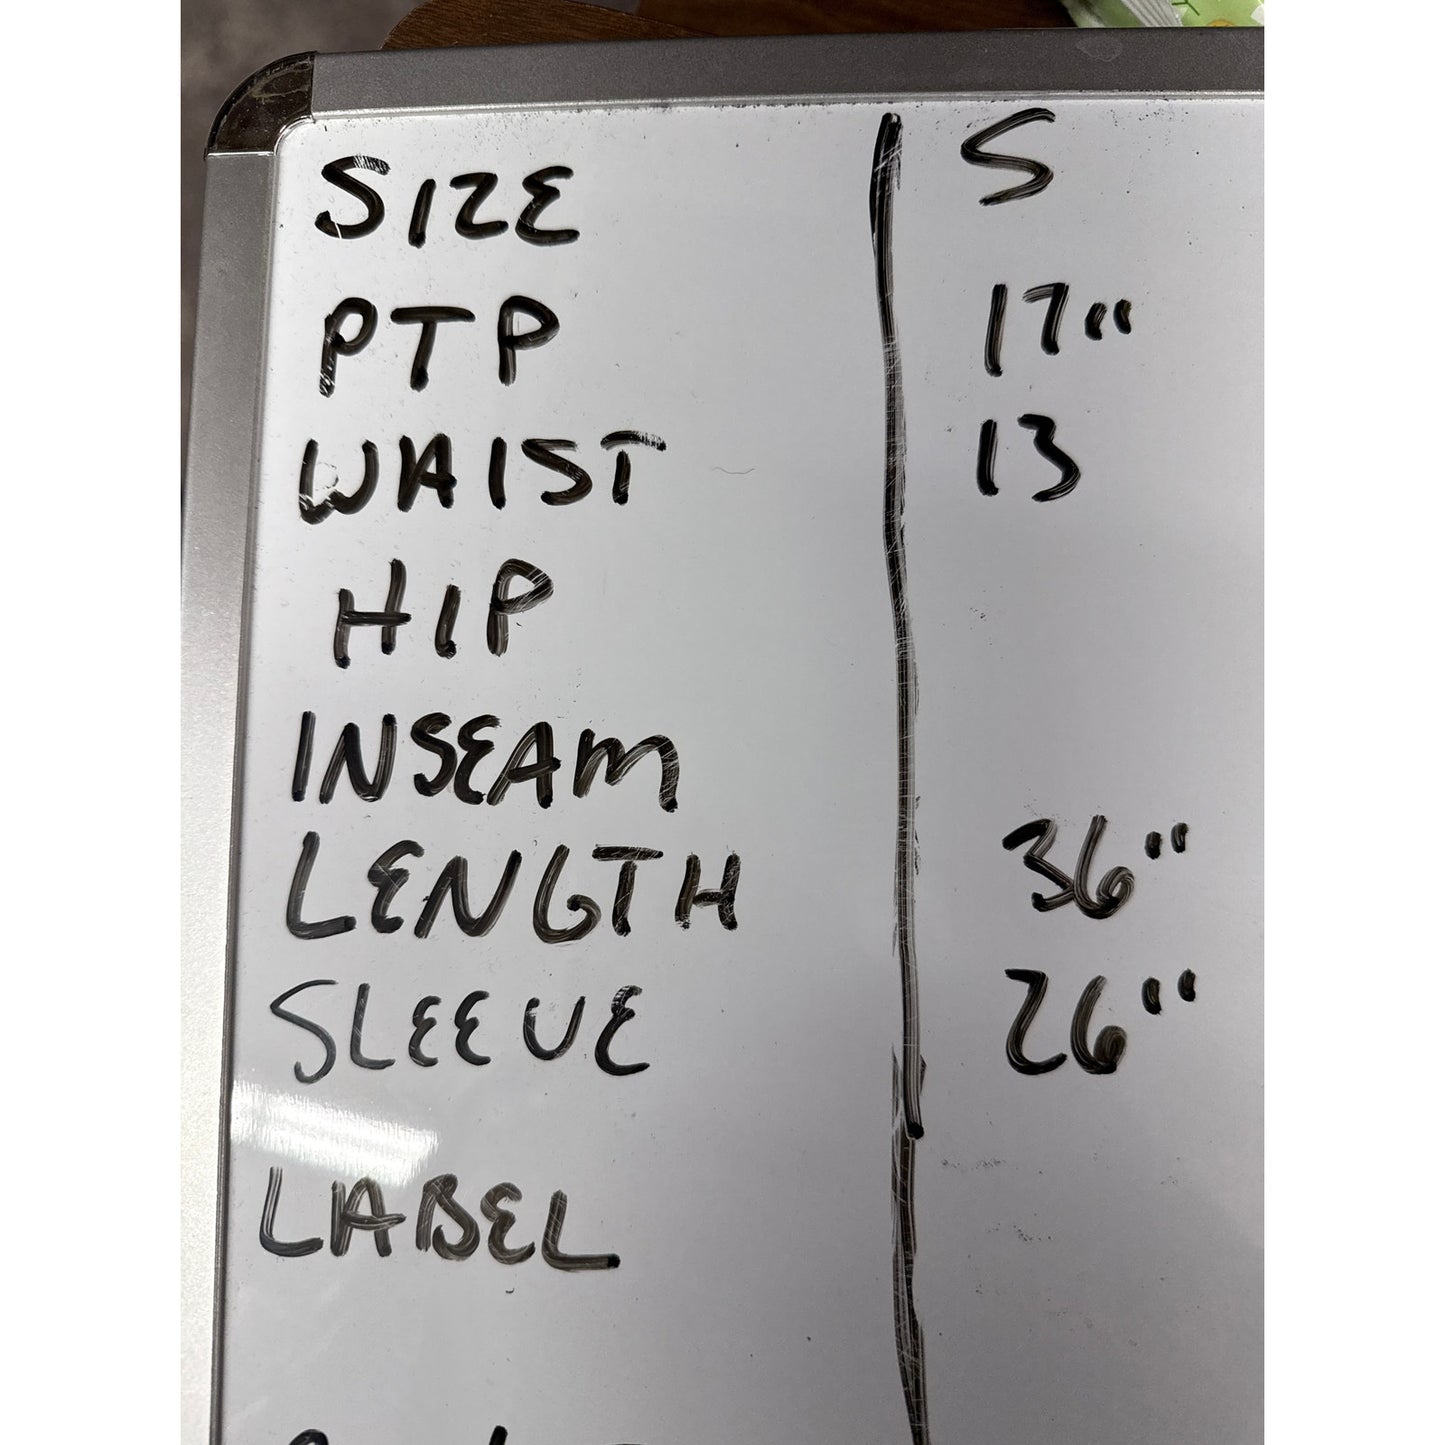 SIZE S
PTP 17"
WAIST 13
HIP
INSEAM
LENGTH 36"
SLEEVE 26"
LABEL